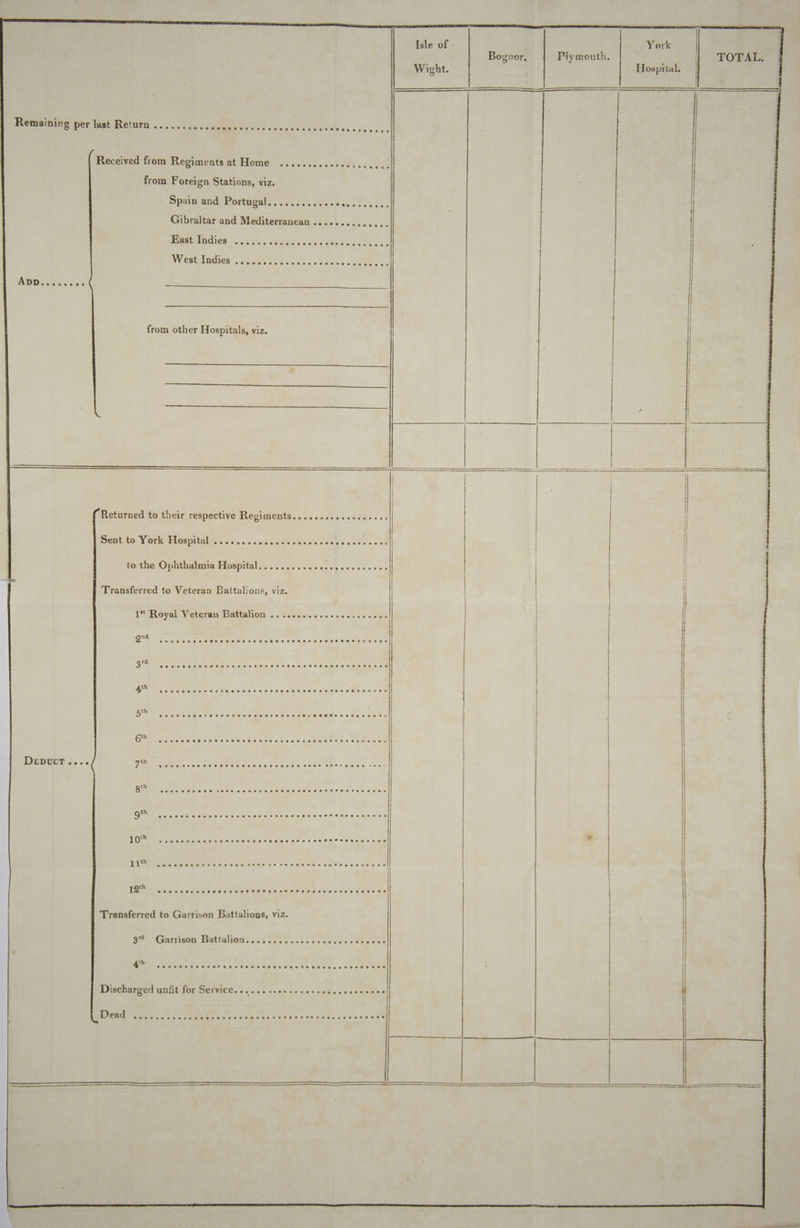 Isle of Wight.
Bognor.
Plymouth.
York Hospital.
TOTAL.
Remaining per last Return ........................................
Received from Regiments at Home ....................
from Foreign Stations, viz.
Spain and Portugal........................
Gibraltar and Mediterranean ..............
East Indies ............................
West Indies ............................
ADD........
from other Hospitals, viz.
Returned to their respective Regiments.................
Sent to York Hospital ................................
to the Ophthalmia Hospital........................
Transferred to Veteran Battalions, viz.
1st Royal Veteran Battalion .....................
2nd ........................................
3rd ........................................
4th ........................................
5th ........................................
6th ........................................
DEDUCT ....
7th ........................................
8th ........................................
9th ........................................
10th ........................................
11th ........................................
12th ........................................
Transferred to Garrison Battalions, viz.
3rd Garrison Battalion.........................
4th ........................................
Discharged unfit for Service...........................
Dead .............................................